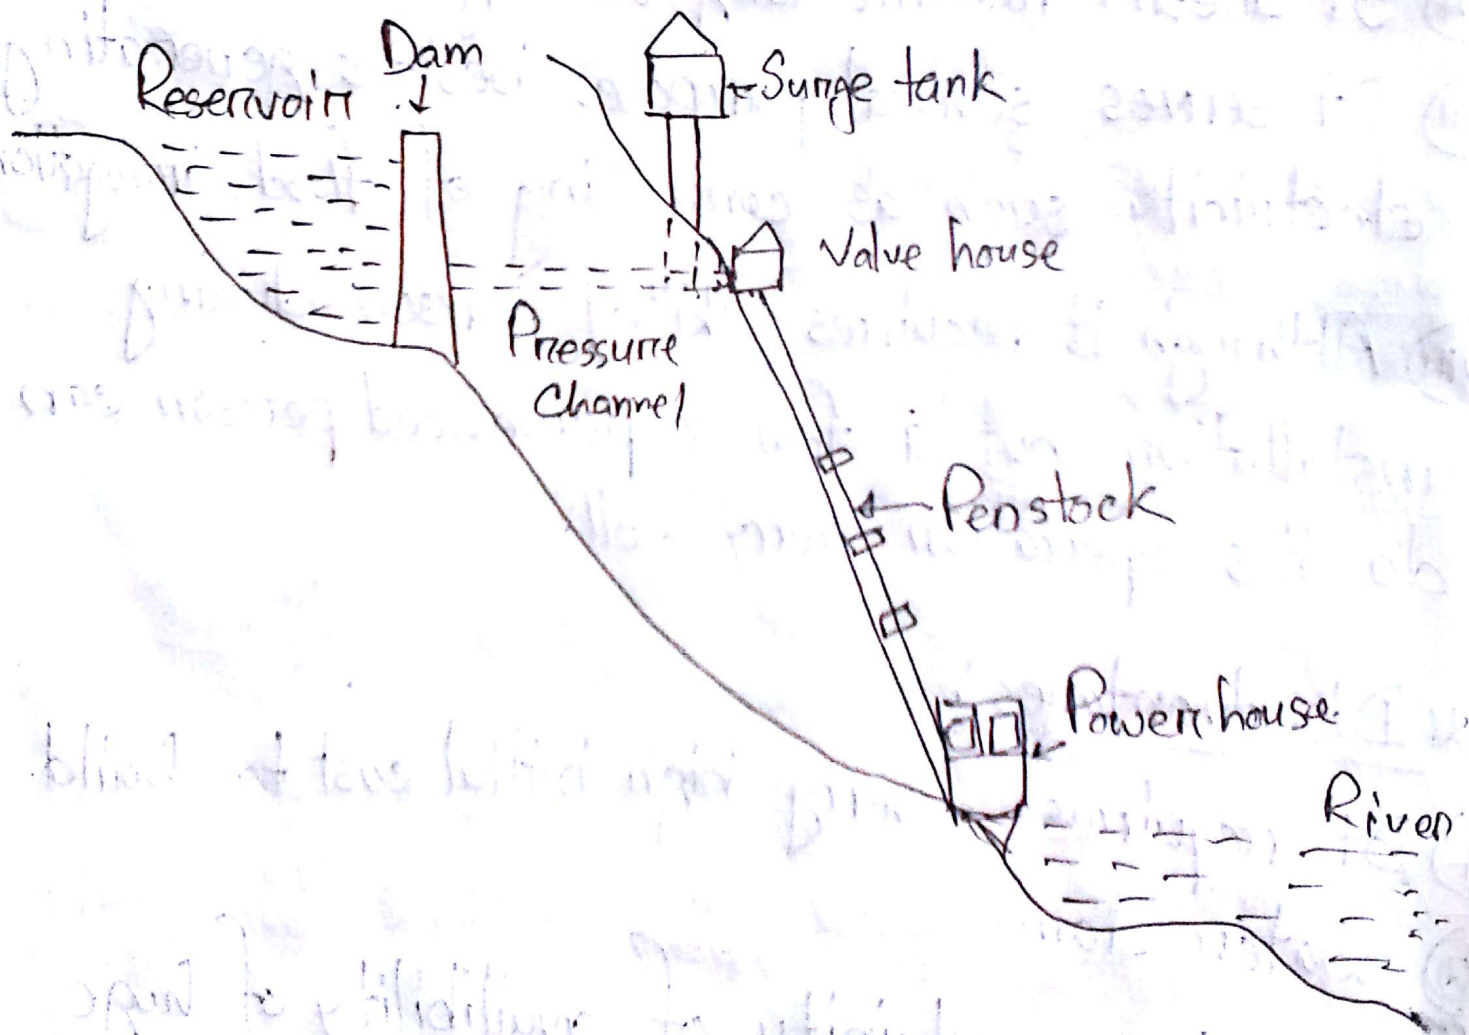 Dam
Reservoir
Surge tank
Valve house
Pressure
Channel
Penstock
Powerhouse
River